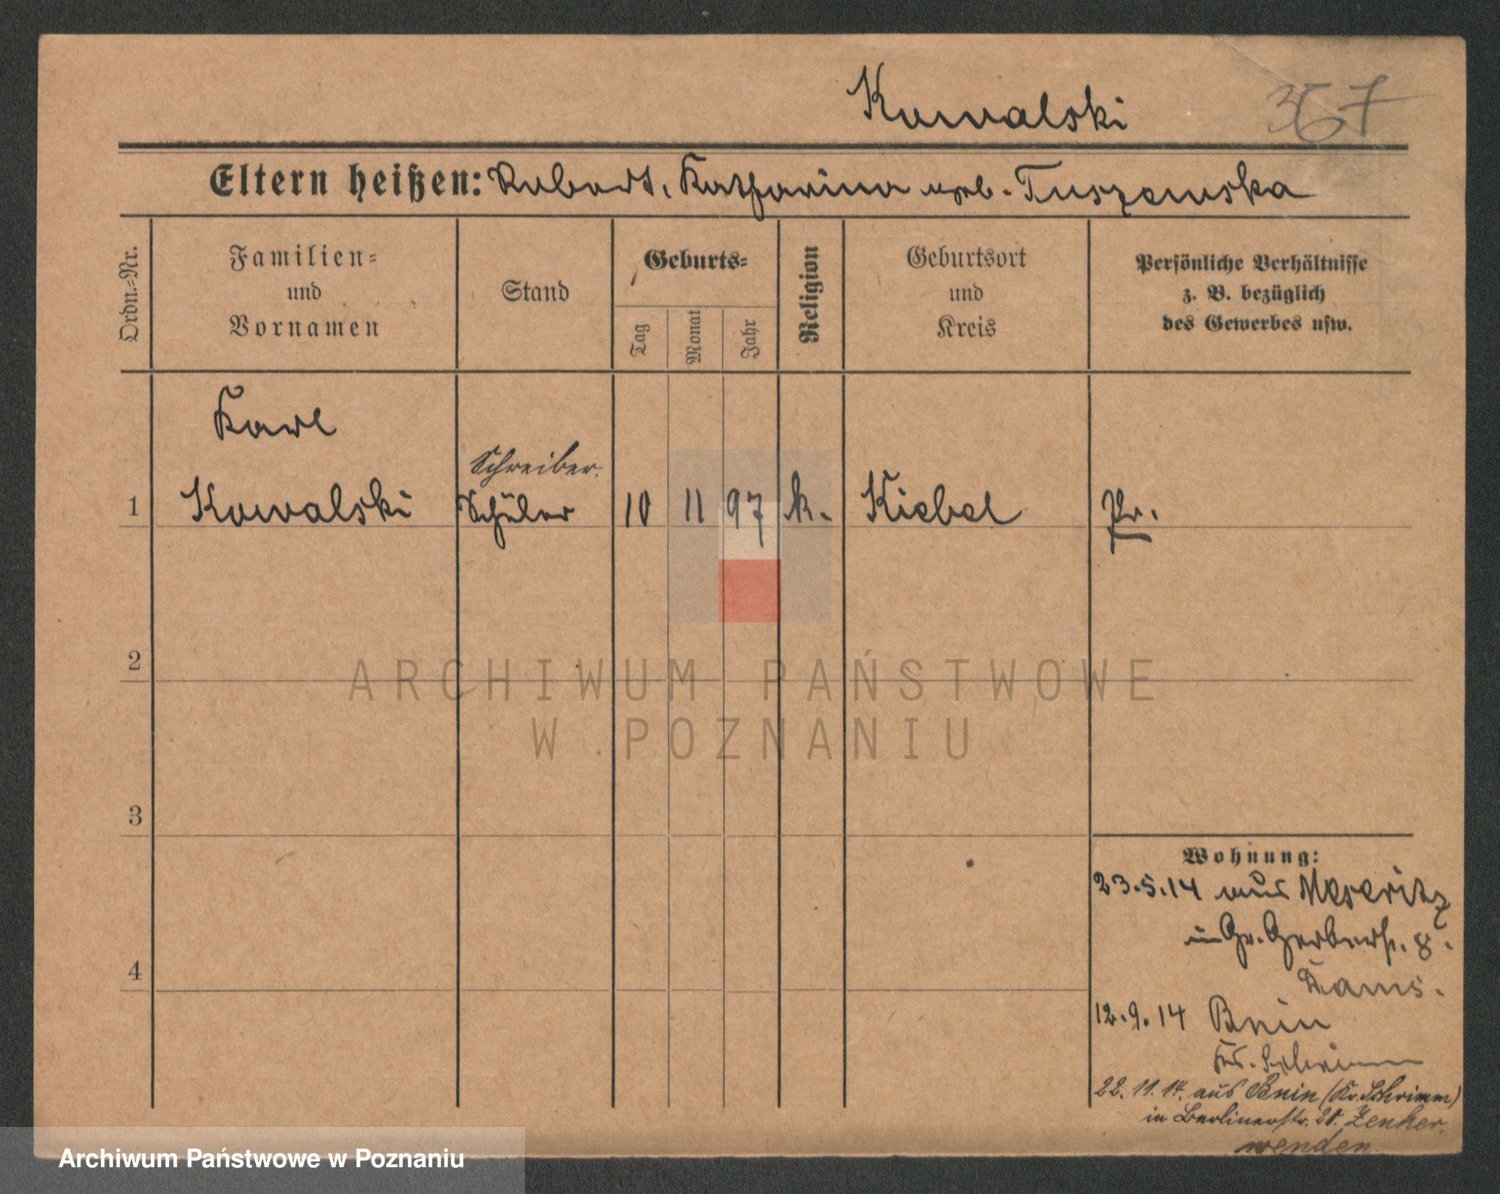 Kowalski 367
Eltern heißen: Robert, Katharina geb. Tuszewska
Ordn.-Nr.
Familien-
und
Vornamen
Stand
Geburts-
Tag
Monat
Jahr
Religion
Geburtsort
und
Kreis
Persönliche Verhältnisse
z. B. bezüglich
des Gewerbes usw.
Karl
Schreiber.
1 Kowalski Schüler 10 11 97 k. Kiebel Pr.
2
ARCHIWUM PAŃSTWOWE
W POZNANIU
3
Wohnung:
23.5.14 aus Meseritz
in Gr. Gerberst. 8.
4
12.9.14 Bnin
Krs. Schrimm
22.11.14. aus Bnin (Kr. Schrimm)
in Berlinerstr. 20. Zenker.
wenden.
Archiwum Państwowe w Poznaniu